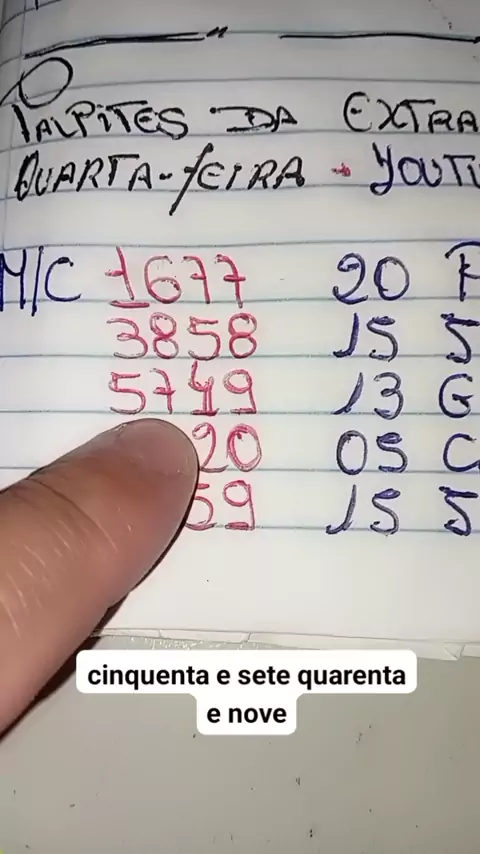 PALPITES DA EXTRA
QUARTA-FEIRA - YOUTU
M/C 1677 20 P
3858 15 5
5749 13 G
20 05 C
59 15 5
cinquenta e sete quarenta
e nove